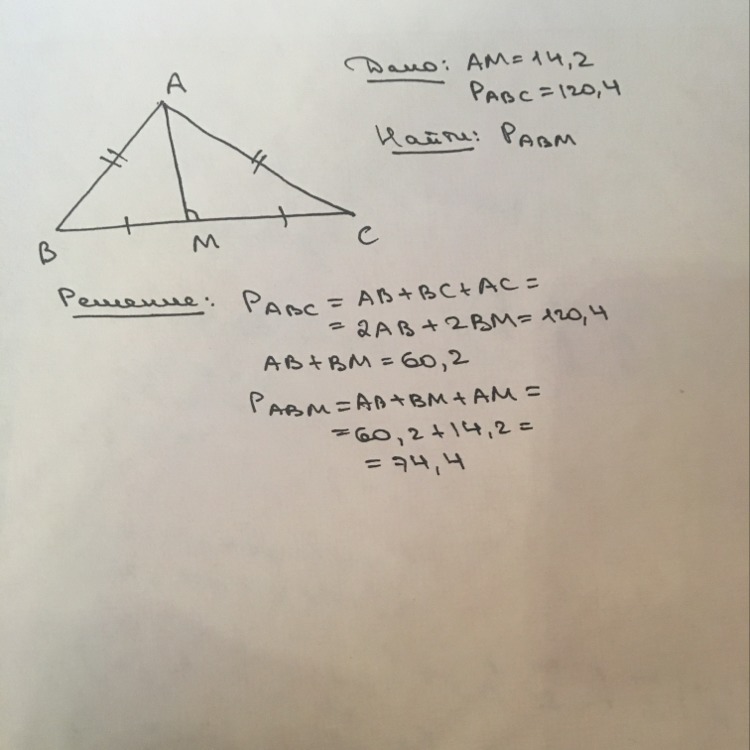 Дано: AM=14,2
P ABC = 120,4
Найти: P ABM
A
B
M
C
Решение: P ABC = AB+BC+AC =
= 2AB + 2BM = 120,4
AB+BM = 60,2
P ABM = AB+BM+AM =
=60,2+14,2 =
= 74,4